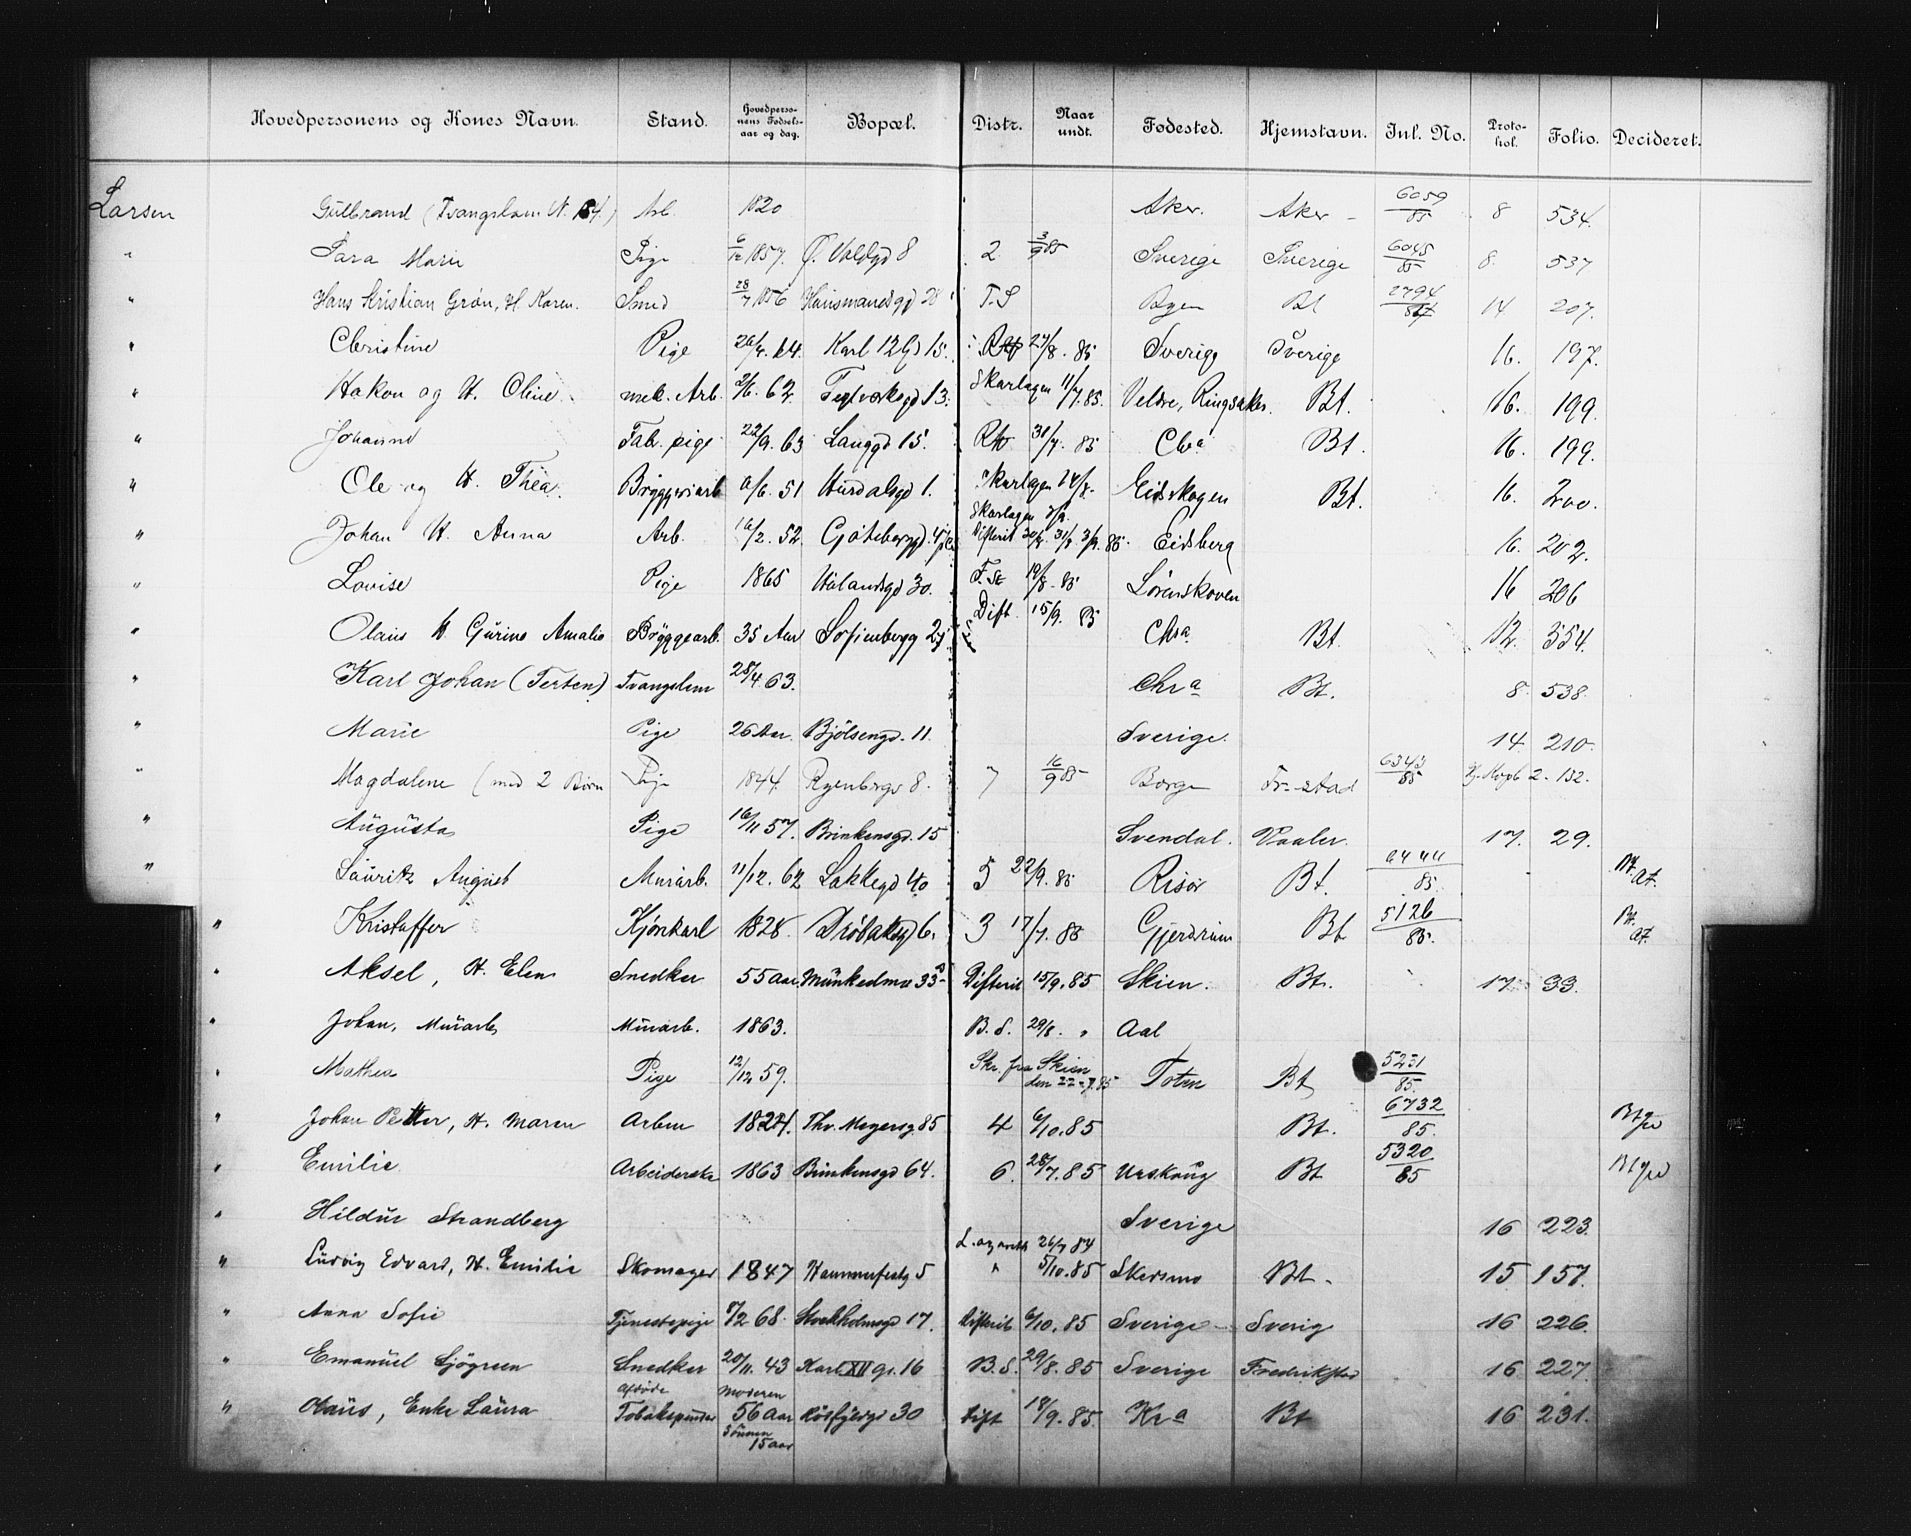 Hovedpersonens og Kones Navn. Stand. Hovedpersonens Fødselsaar og dag. Bopæl. Distr. Naar undt. Fødested. Hjemstavn. Inl. No. Protokol. Folio. Decideret.
Larsen Gulbrand (Tvangslem N. 64.) Arb. 1820 Aker. Aker - 6059/85 8 534.
" Sara Marie Pige 6/12 1857. Ø. Voldgd 8 2. 3/9 85 Sverige Sverige 6045/85 8. 537
" Hans Kristian Grøn, H. Karen. Smed 28/7 1856 Hausmandsgd 28 T.S Byen Bt 2794/84 14 207.
" Christine Pige 26/4. 64. Karl 12 Gd 15. 27/8. 85 Sverige Sverige 16. 197.
" Hakon og H. Oline mek. Arb. 2/6. 62. Fossverksgd 13. Skarlagen 11/7. 85. Veldre, Ringsaker. Bt. 16. 199.
" Johanne Fab. pige 22/9. 63 Langgd 15. 31/7. 85 Chra Bt. 16. 199.
" Ole og H. Thea. Bryggeriarb 6/6. 51 Hurdalsgd 1. Skarlagen 14/8. Eidskogen Bt. 16. 200.
" Johan H. Anna Arb. 16/2. 52. Gøteborggd. 4 Skarlagen 7/9. Difterit 30/8 31/8 3/9. 85. Eidsberg 16. 202.
" Lovise Pige 1865 Ulandsgd 30. F. St 19/8. 85 Lørenskoven 16 206
" Olaus H Gurine Amalie Bryggearb. 35 Aar Sofienbergg 27 Dift. 15/9. 85 Chra Bt. 12. 354.
" Karl Johan (Terten) Tvangslem 28/4 63. Chra Bt. 8. 538.
" Marie Pige 26 Aar. Bjølsengd. 11. Sverige. 14. 210.
" Magdalene (med 2 Børn Pige 1844. Ryenbergv 8. 7 16/9 85 Borge Fr-stad 6343/85 2 - 132.
" Augusta Pige 16/11 57. Brinkensgd. 15 Svendal. Vaaler. 17. 29.
" Lauritz August Murarb. 11/12. 62 Lakkegd 40 5 22/9. 85 Risør Bt. 6444/85. Bt. at.
" Kristoffer Kjørekarl 1828. Drøbakgd 6. 3 17/7. 85 Gjerdrum Bt 5126/85. Bt. at.
" Aksel, H. Elen Snedker 55 aar Munkedmv 33a Difterit 15/9. 85 Skien. Bt. 17 33.
" Johan, Murarb Murarb. 1863. B. S. 29/8. " Aal
" Mathea Pige 12/12 59. Skr. fra Skien den 22-7. 85 Toten Bt 5231/85.
" Johan Petter, H. Maren Arbm 1824. Thv. Meyersg 85 4 6/10. 85 Bt. 6732/85. Bt
" Emilie Arbeiderske 1863 Brinkensgd 64. 6. 28/7. 85 Urskoug Bt 5320/85 Bt
" Hildur Strandberg Sverige 16 223.
" Ludvig Edvard, H. Emilie Skomager 1847 Hammerfestg 5 Lazareth 26/7 84 " 5/10. 85 Skedsmo Bt - 15 157.
" Anna Sofie Tjenestepige 7/2 68. Stockholmsgd 17. Difterit 6/10. 85 Sverige - Sverig 16 226.
" Emanuel Sjøgreen Snedker 20/11. 43 Karl XII gr. 16 B. S. 29/8. 85 Sverige Fredrikstad 16 227.
" Olaus, Enke Laura afdøde Tobakspinder Moderen 56 aar Sønnen 15 aar 30 Dift 18/9. 85. Kra Bt 16 231.